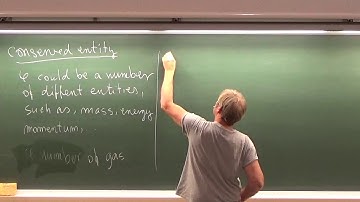 Conserved entity
φ could be a number
of diffent entities,
such as, mass, energy
momentum,
number of gas